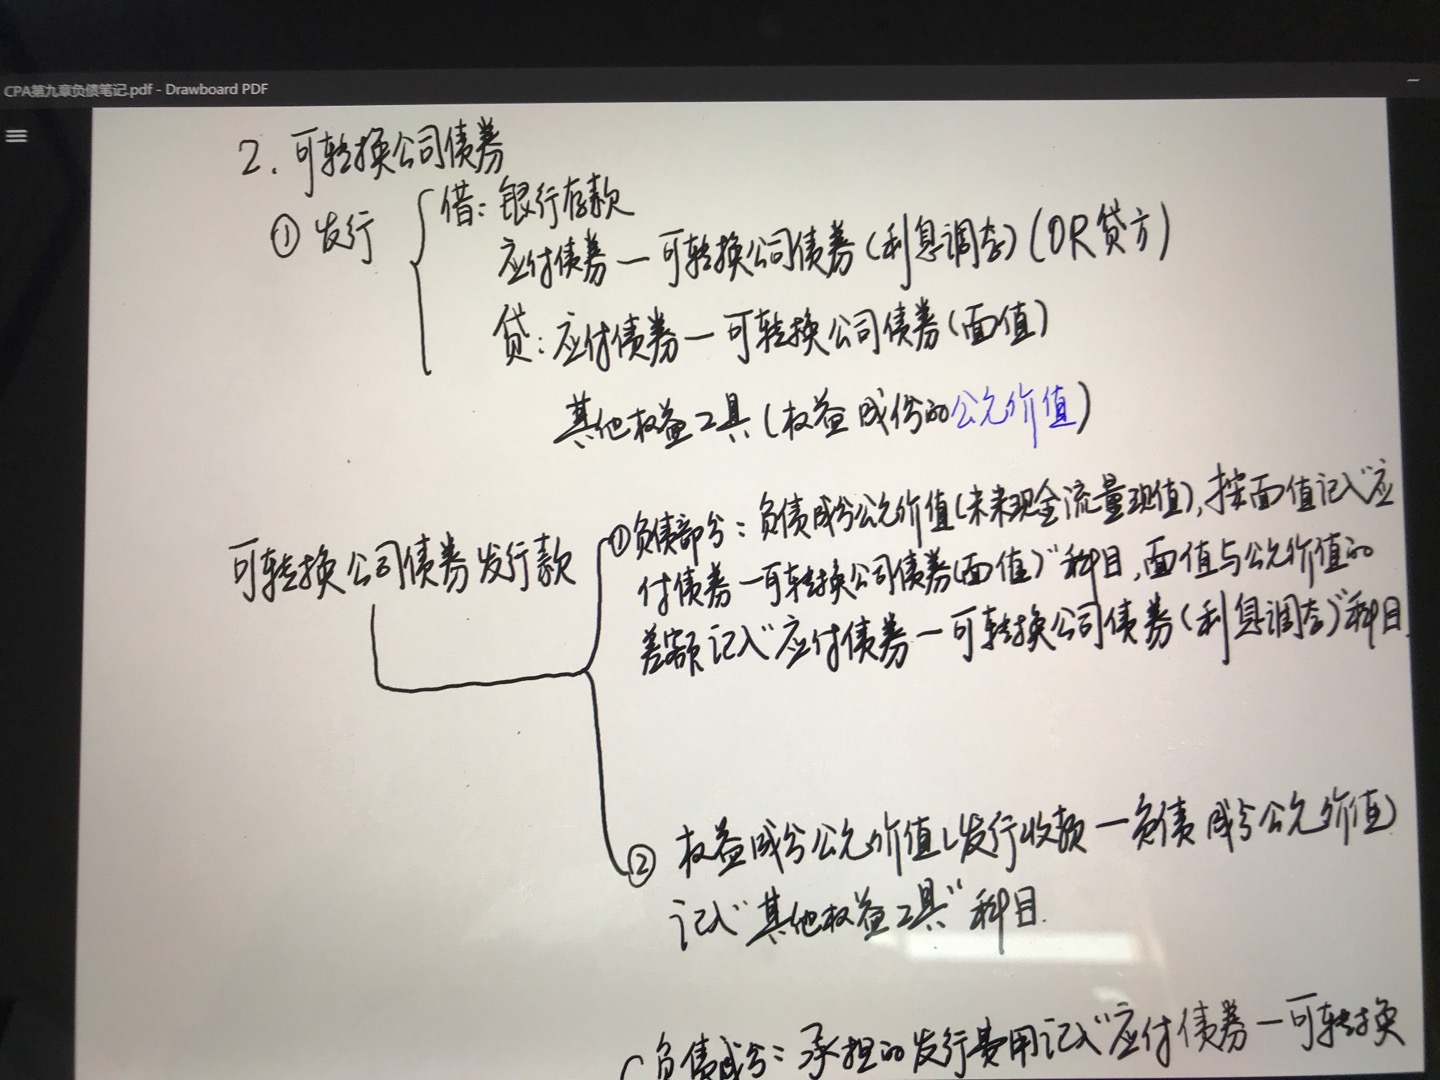 CPA第九章负债笔记.pdf - Drawboard PDF
2. 可转换公司债券
① 发行
借: 银行存款
应付债券—可转换公司债券(利息调整)(OR贷方)
贷: 应付债券—可转换公司债券(面值)
其他权益工具(权益成份的公允价值)
可转换公司债券发行款
①负债部分: 负债成分公允价值(未来现金流量现值), 按面值记入"应
付债券—可转换公司债券(面值)"科目, 面值与公允价值的
差额记入"应付债券—可转换公司债券(利息调整)"科目.
② 权益成分公允价值(发行收款—负债成分公允价值)
记入"其他权益工具"科目.
负债成分: 承担的发行费用记入"应付债券—可转换